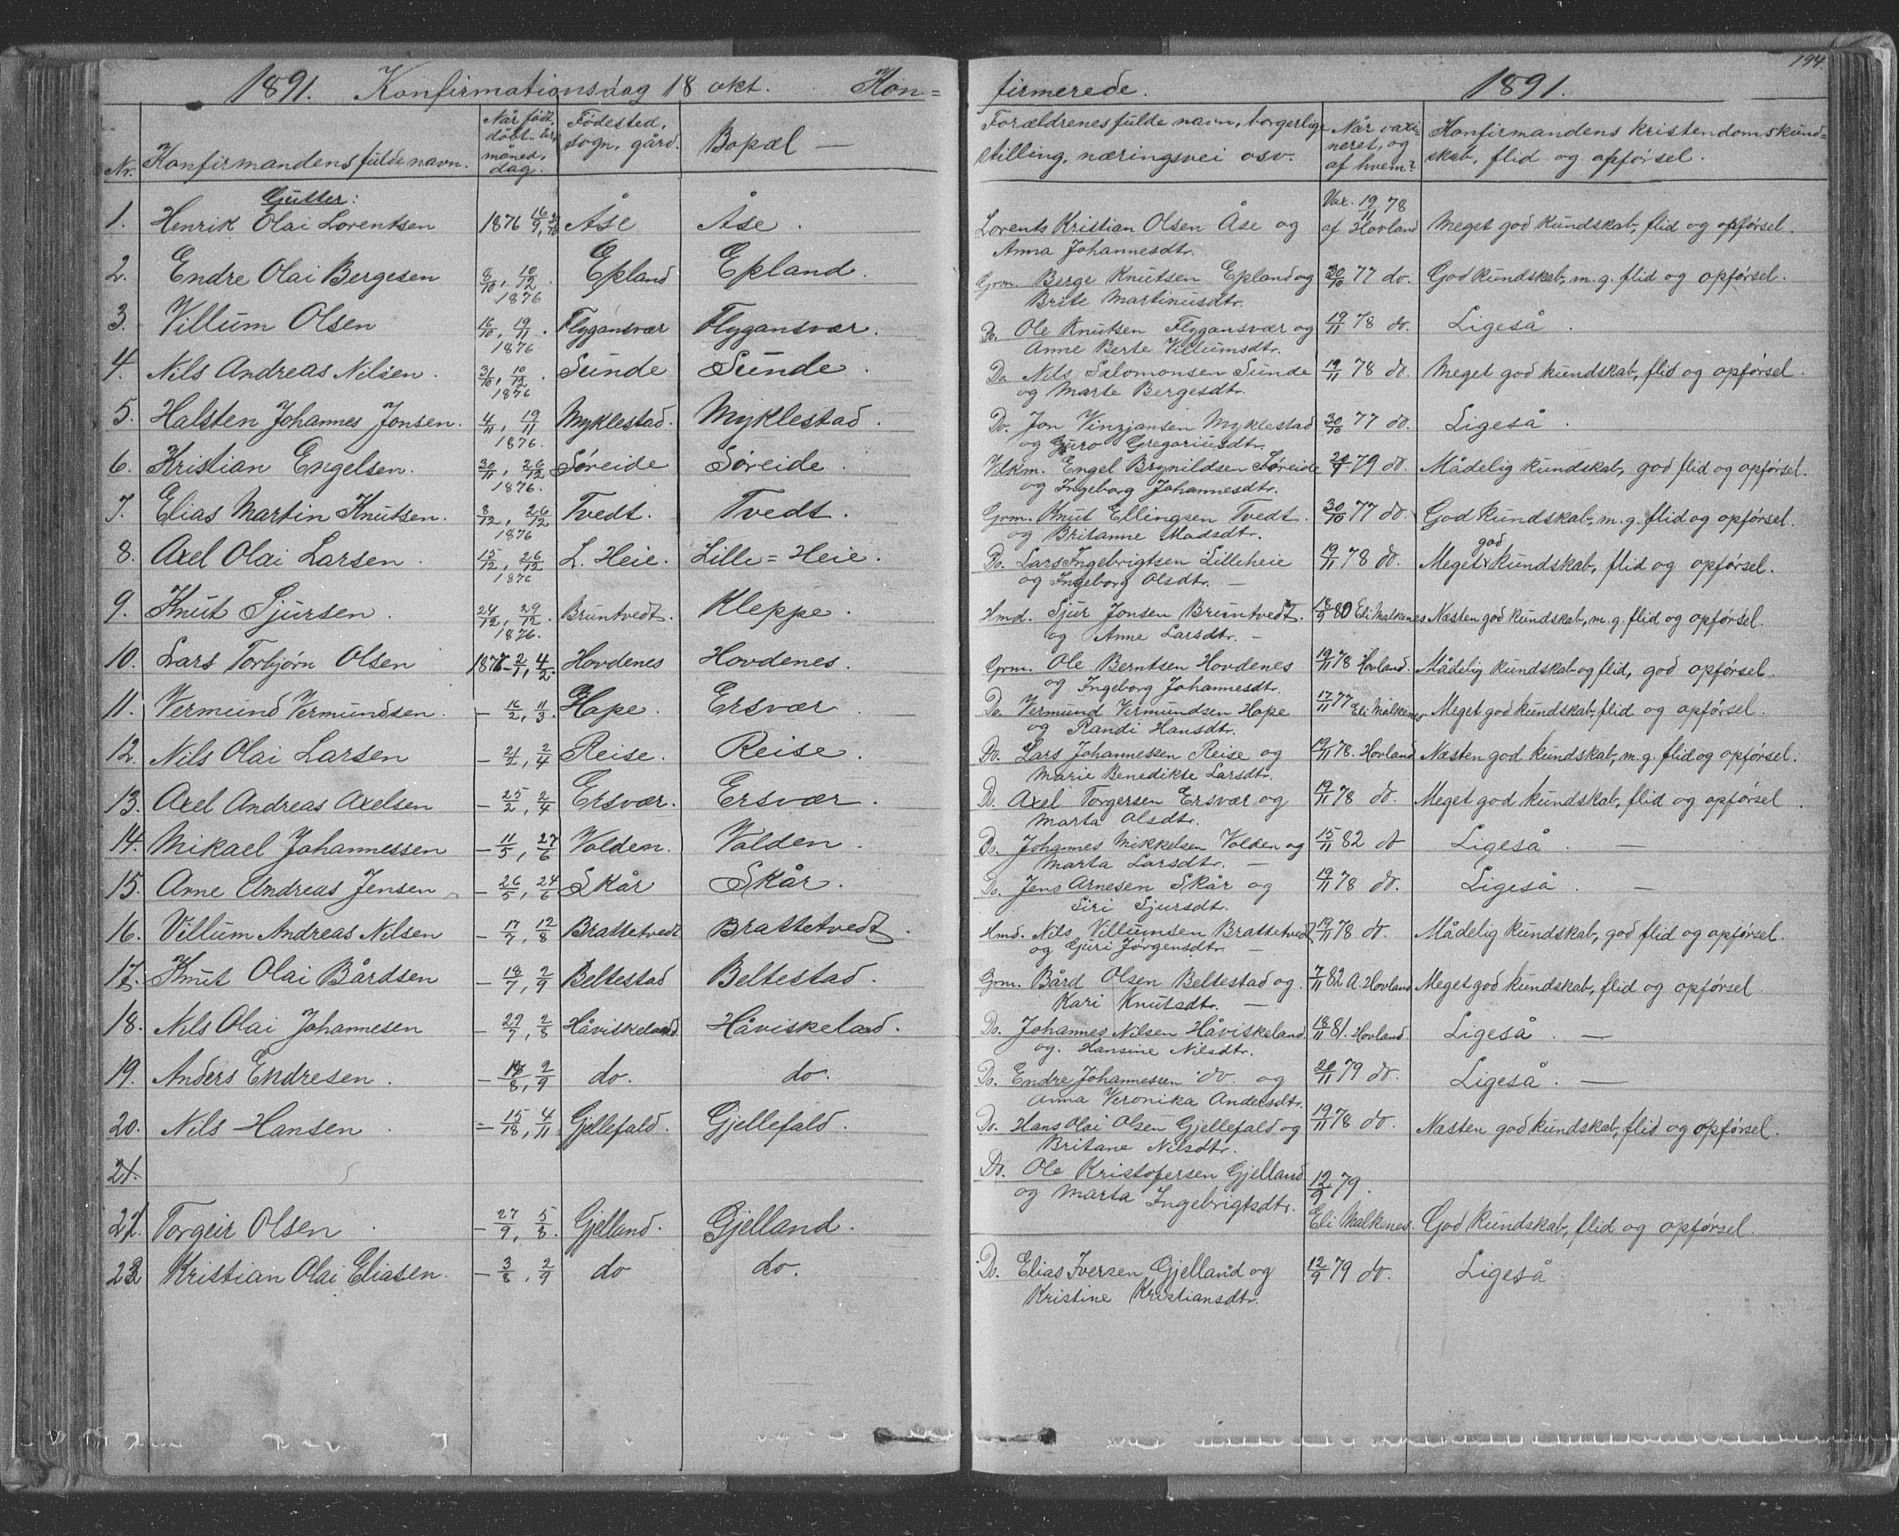 1891. Konfirmationsdag 18 okt. Kon=
Nr. Konfirmandens fulde navn. Når født, døbt år, måned, dag. Fødested, sogn, gård. Bopæl —
Gutter:
1. Henrik Olai Lorentsen 1876 16/9, Åse Åse.
2. Endre Olai Bergesen 8/10, 10/12. 1876 Epland Epland.
3. Villum Olsen 16/10, 19/11. 1876 Flygansvær Flygansvær.
4. Nils Andreas Nilsen. 31/10, 10/12. 1876 Sunde Sunde.
5. Halsten Johannes Jonsen. 4/11, 19/11 1876. Myklestad. Myklestad.
6. Kristian Engelsen. 30/11, 26/12 1876. Søreide Søreide.
7. Elias Martin Knutsen. 8/12, 26/12 1876 Tvedt. Tvedt.
8. Axel Olai Larsen. 15/12, 26/12 1876 L. Heie. Lille=Heie.
9. Knut Sjursen. 24/12, 29/12 1876. Bruntvedt. Kleppe.
10. Lars Torbjørn Olsen 1877 2/1, 4/2. Hovdenes Hovdenes.
11. Vermund Vermundsen. — 16/2, 11/3. Hope. Ersvær.
12. Nils Olai Larsen — 21/2, 2/4 Reise. Reise.
13. Axel Andreas Axelsen — 25/2, 2/4 Ersvær. Ersvær.
14. Mikael Johannessen — 11/5, 27/6 Volden. Volden.
15. Arne Andreas Jensen — 26/5, 24/6 Skår Skår.
16. Villum Andreas Nilsen — 17/7, 12/8 Brattetvedt Brattetvedt.
17. Knut Olai Bårdsen — 18/7, 2/9 Beltestad Beltestad.
18. Nils Olai Johannesen — 29/7, 2/8 Håviskeland Håviskeland.
19. Anders Endresen. — /8, 2/9 do. do.
20. Nils Hansen. — 15/18, 4/11 Gjellefald. Gjellefald.
21.
21 Torgeir Olsen. — 27/9, 5/8 Gjelland. Gjelland.
22 Kristian Olai Eliasen. — 3/8, 2/9 do do.
194.
firmerede. 1891.
Forældrenes fulde navn, borgerlige stilling, næringsvei osv. Når vaxineret, og af hvem? Konfirmandens kristendomskundskab, flid og opførsel.
Lorents Kristian Olsen Åse og Vax. 19/11 78 af Hovland Meget god kundskab, flid og opførsel.
Anna Johannesdtr.
Grm. Berge Knutsen Epland og 30/10 77 do. God kundskab, m. g. flid og opførsel.
Brite Martinusdtr.
Do. Ole Knutsen Flygansvær og 19/11 78 do. Ligeså.
Anne Berte Villumsdtr.
Do. Nils Salomonsen Sunde 19/11 78 do. Meget god kundskab, flid og opførsel.
og Marte Bergesdtr.
Do. Jon Vinzjansen Myklestad 30/10 77 do. Ligeså.
og Guro Gregoriusdtr.
Vilkm. Engel Brynildsen Søreide 79 do. Mådelig kundskab, god flid og opførsel.
og Ingeborg Johannesdtr.
Grm. Knut Ellingsen Tvedt. 30/10 77 do. God kundskab, m. g. flid og opførsel.
og Britanne Madsdtr.
Do. Lars Ingebrigtsen Lilleheie 19/11 78 do. Meget god kundskab, flid og opførsel.
og Ingeborg Olsdtr. —
Hmd. Sjur Jonsen Bruntvedt. 18/9 80 Eli Malkenes Næsten god kundskab, m. g. flid og opførsel.
og Anne Larsdtr. —
Grm. Ole Berntsen Hovdenes 19/11 78 Hovland. Mådelig kundskab og flid, god opførsel.
og Ingeborg Johannesdtr.
Do. Vermund Vermundsen Hope 17/11 77 Eli Malkenes Meget god kundskab, flid og opførsel.
og Randi Hansdtr.
Do. Lars Johannessen Reise og 19/11 78. Hovland Næsten god kundskab, m. g. flid og opførsel.
Marie Benedikte Larsdtr.
D. Axel Torgersen Ersvær og 19/11 78 do. Meget god kundskab, flid og opførsel.
Marta Olsdtr.
Do. Johannes Mikkelsen Volden og 15/11 82 do Ligeså. —
Marta Larsdtr. —
Do. Jens Arnesen Skår og 19/11 78 do. Ligeså. —
Siri Sjursdtr.
Hmd. Nils Villumsen Brattetvedt 19/11 78 do. Mådelig kundskab, god flid og opførsel.
og Guri Jørgensdtr. —
Grm. Bård Olsen Beltestad og 7/11 82 A. Hovland Meget god kundskab, flid og opførsel
Kari Knutsdtr. —
Do. Johannes Nilsen Håviskeland 18/11 81. Hovland Ligeså. —
og. Hansine Nilsdtr.
Do. Endre Johannessen do og 20/11 79 do. Ligeså. —
Anna Veronika Andersdtr.
Do. Hans Olai Olsen Gjellefald og 19/11 78 do. Næsten god kundskab, flid og opførsel.
Britane Nilsdtr.
Do. Ole Kristofersen Gjelland 12/9 79.
og Marta Ingebrigtsdtr. Eli Malkenes. God kundskab, flid og opførsel.
Do. Elias Iversen Gjelland og 12/9 79 do. Ligeså.
Kristine Kristiansdtr.